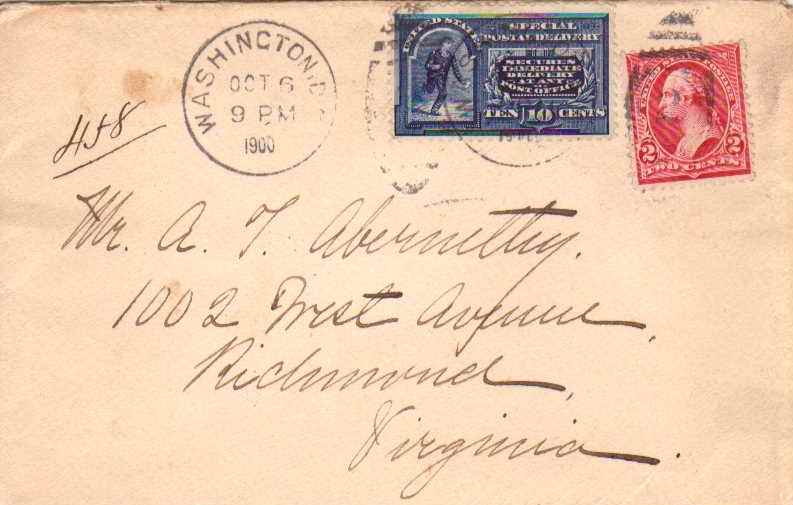 WASHINGTON, D.
OCT 6
9 PM
1900
UNITED STATES
SPECIAL
POSTAL DELIVERY
SECURES
IMMEDIATE
DELIVERY
AT ANY
POST OFFICE
TEN 10 CENTS
2 2
TWO CENTS
458
Mr. A. T. Abernethy.
1002 West Avenue,
Richmond,
Virginia.